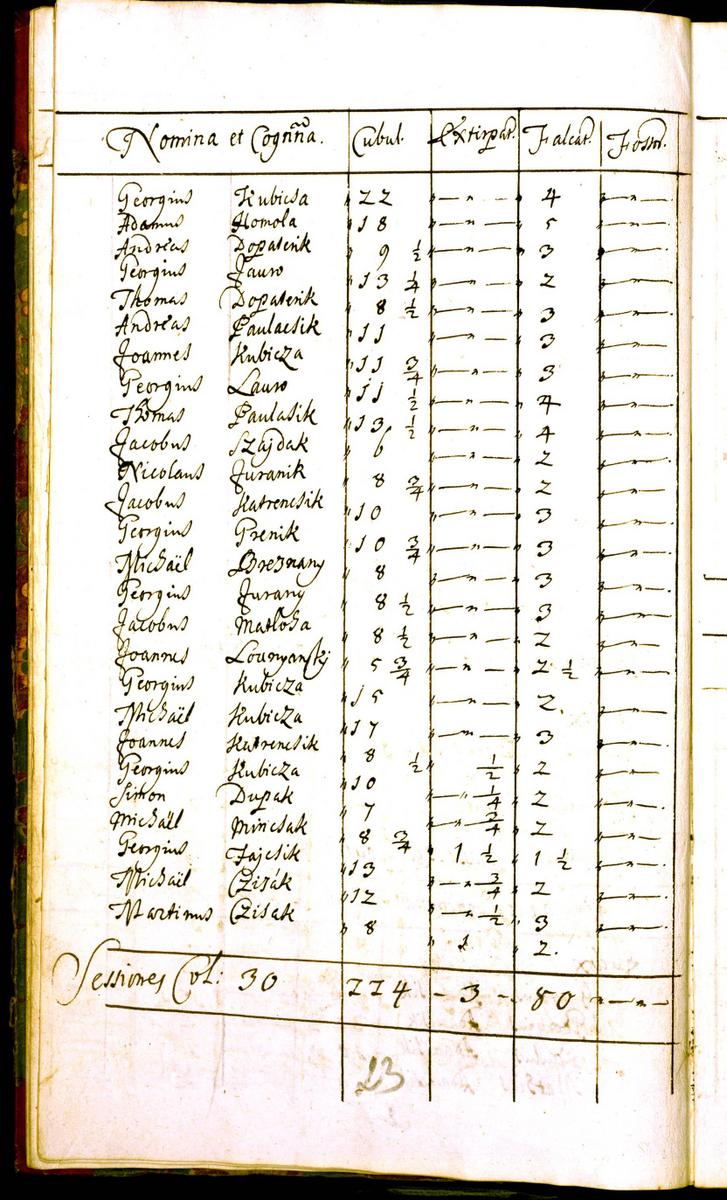 Nomina et Cognna. Cubul. Extirpat. Falcat. Fossor.
Georgius Kubicsa 22 — " — 4 — " —
Adamus Homola 18 — " — 5 — " —
Andreas Dopaterik 9 ½ — " — 3 — " —
Georgius Jauro 13 ¼ — " — 2 — " —
Thomas Dopaterik 8 ½ — " — 3 — " —
Andreas Paulacsik 11 — " — 3 — " —
Joannes Kubicza 11 ¾ — " — 3 — " —
Georgius Lauro 11 ½ — " — 4 — " —
Thomas Paulasik 13 ½ — " — 4 — " —
Jacobus Szajdak 6 — " — 2 — " —
Nicolaus Juranik 8 ¾ — " — 2 — " —
Jacobus Katrencsik 10 — " — 3 — " —
Georgius Prenik 10 ¾ — " — 3 — " —
Michaël Breznany 8 — " — 3 — " —
Georgius Jurany 8 ½ — " — 3 — " —
Jacobus Matloha 8 ½ — " — 2 — " —
Joannes Lounyanskj 5 ¾ — " — 2 ½ — " —
Georgius Kubicza 15 — " — 2. — " —
Michaël Kubicza 17 — " — 3 — " —
Joannes Katrencsik 8 ½ ½ 2 — " —
Georgius Kubicza 10 — " ¼ 2 — " —
Simon Dupak 7 — " ¾ 2 — " —
Michaël Mincsak 8 ¾ 1 ½ 1 ½ — " —
Georgius Fajcsik 13 — " ¾ 2 — " —
Michaël Czisák 12 — " ½ 3 — " —
Martinus Czisak 8 1 2. — " —
Sessiones Col: 30 224 - 3 - 80 — " —
23